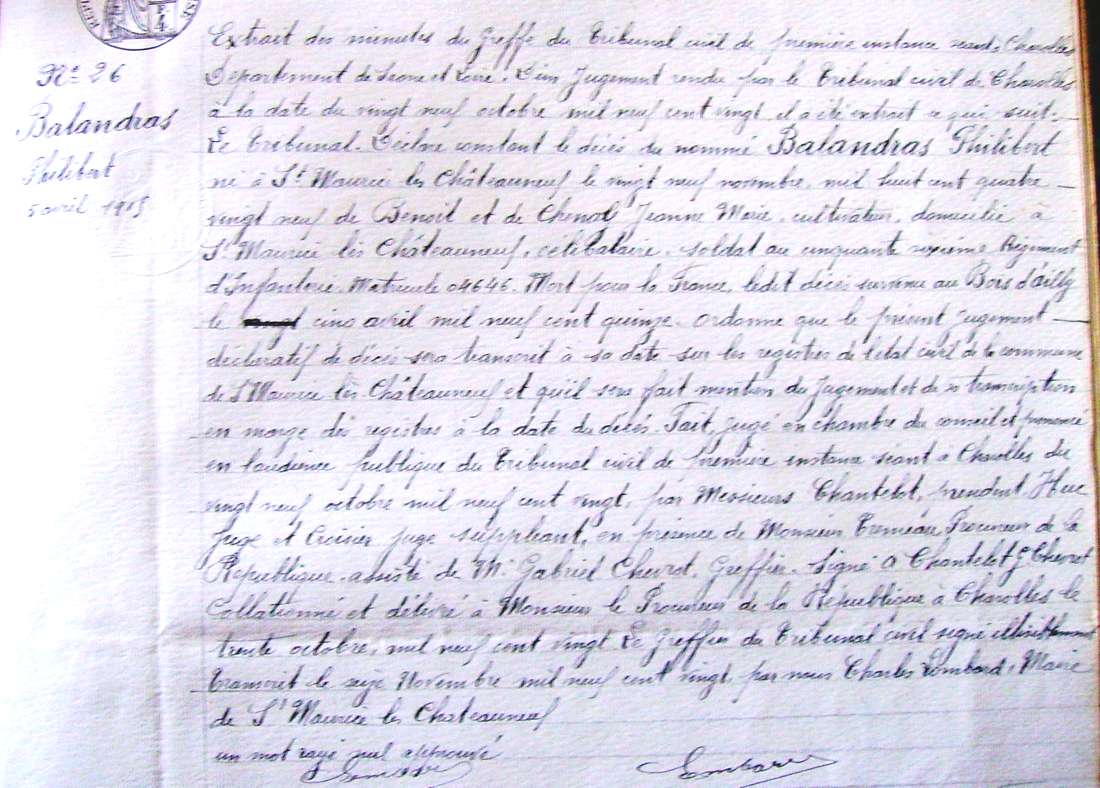 N° 26
Balandras
Philibert
5 avril 1915
Extrait des minutes du Greffe du Tribunal civil de première instance séant à Charolles
Département de Saone et Loire. D'un Jugement rendu par le Tribunal civil de Charolles
à la date du vingt neuf octobre mil neuf cent vingt il a été extrait ce qui suit.
Le Tribunal. Déclare constant le décès du nommé Balandras Philibert
né à St Maurice les Châteauneuf le vingt neuf novembre mil huit cent quatre
vingt neuf de Benoit et de Jeanne Marie, cultivateur, domicilié à
St Maurice lès Châteauneuf, célibataire, soldat au cinquante sixième Régiment
d'Infanterie. Matricule 04646. Mort pour la France, ledit décès survenu au Bois d'Ailly
le cinq avril mil neuf cent quinze. Ordonne que le présent jugement
déclaratif de décès sera transcrit à sa date sur les registres de l'état civil de la commune
de St Maurice lès Châteauneuf et qu'il sera fait mention du jugement et de sa transcription
en marge des registres à la date du décès. Fait, jugé en chambre du conseil et prononcé
en l'audience publique du Tribunal civil de première instance séant à Charolles du
vingt neuf octobre mil neuf cent vingt, par Messieurs Chantelot, président, Huc
Juge et Croisier juge suppléant, en présence de Monsieur Procureur de la
République assisté de Mr Gabriel Chevrot, Greffier. Signé A Chantelot G Chevrot
Collationné et délivré à Monsieur le Procureur de la République à Charolles le
trente octobre, mil neuf cent vingt Le Greffier du Tribunal civil signé illisiblement
Transcrit le seize Novembre mil neuf cent vingt, par nous Charles Lombard, Maire
de St Maurice les Chateauneuf
un mot rayé nul approuvé
Lombard Lombard